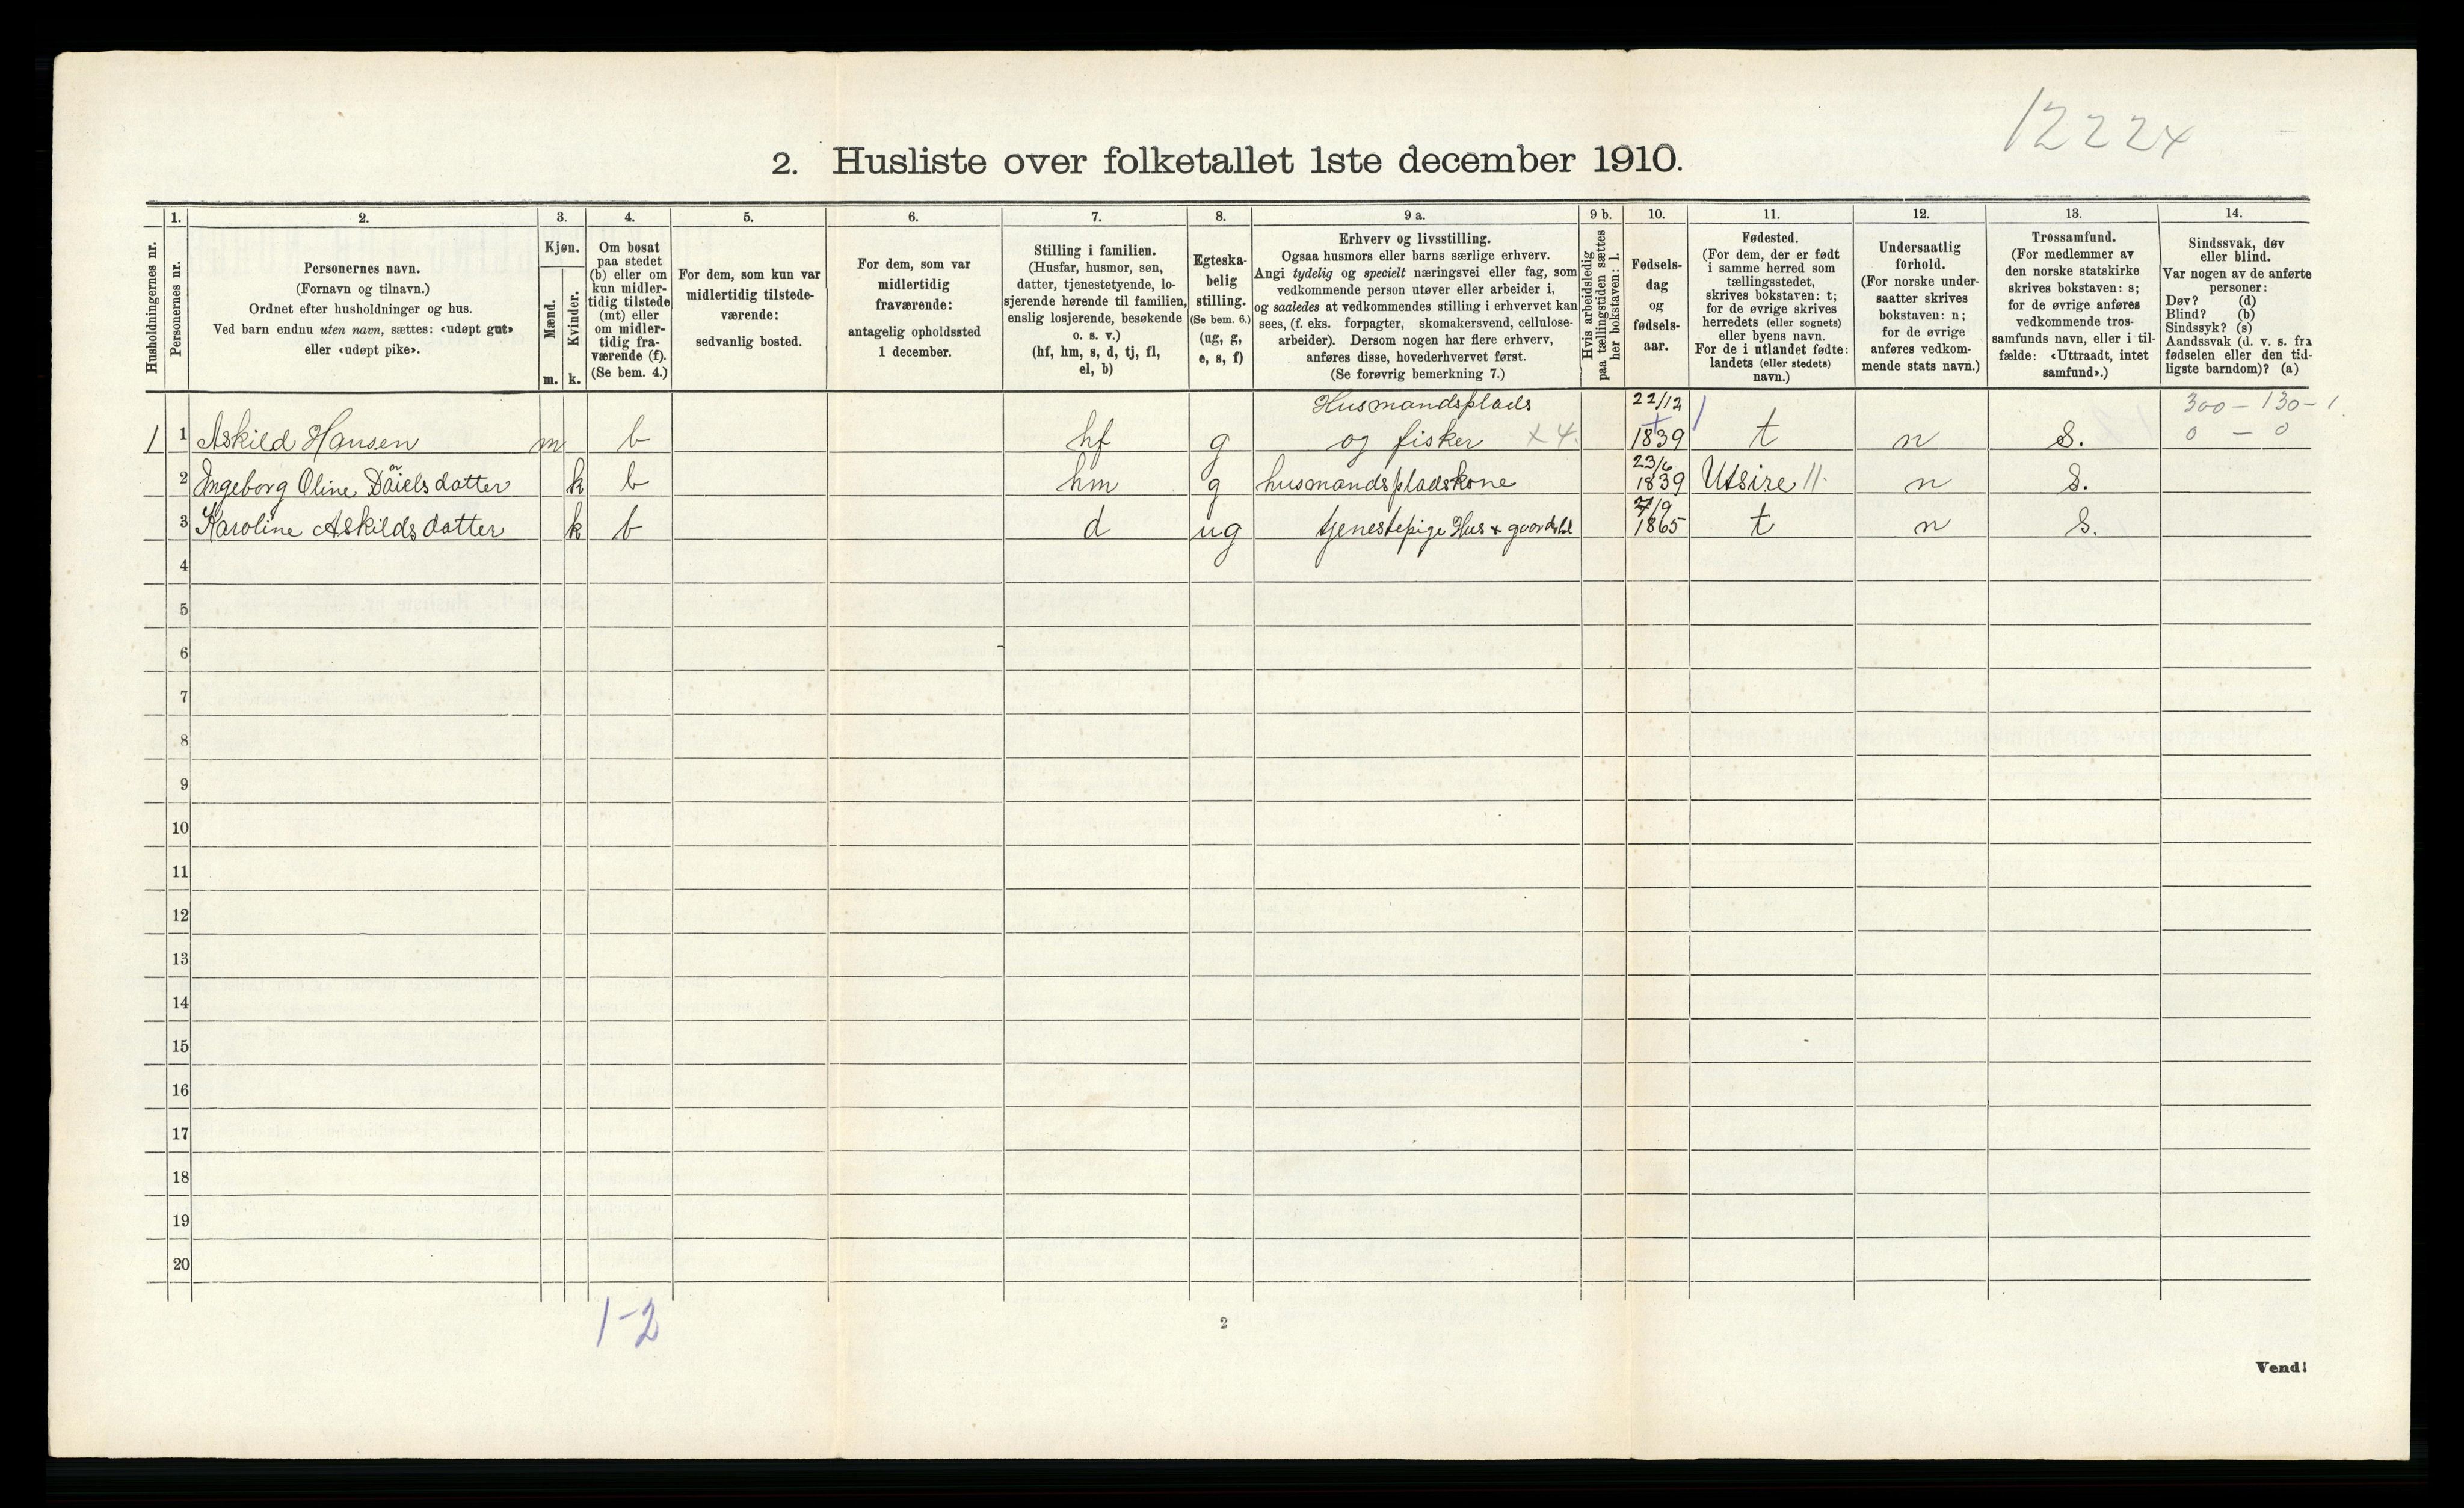 12224
2. Husliste over folketallet 1ste december 1910.
Husholdningernes nr.
1.
Personernes nr.
2.
Personernes navn.
(Fornavn og tilnavn.)
Ordnet efter husholdninger og hus.
Ved barn endnu uten navn, sættes: «udøpt gut»
eller «udøpt pike».
3.
Kjøn.
Mænd.
Kvinder.
m. k.
4.
Om bosat
paa stedet
(b) eller om
kun midler-
tidig tilstede
(mt) eller
om midler-
tidig fra-
værende (f).
(Se bem. 4.)
5.
For dem, som kun var
midlertidig tilstede-
værende:
sedvanlig bosted.
6.
For dem, som var
midlertidig
fraværende:
antagelig opholdssted
1 december.
7.
Stilling i familien.
(Husfar, husmor, søn,
datter, tjenestetyende, lo-
sjerende hørende til familien,
enslig losjerende, besøkende
o. s. v.)
(hf, hm, s, d, tj, fl,
el, b)
8.
Egteska-
belig
stilling.
(Se bem. 6.)
(ug, g,
e, s, f)
9 a.
Erhverv og livsstilling.
Ogsaa husmors eller barns særlige erhverv.
Angi tydelig og specielt næringsvei eller fag, som
vedkommende person utøver eller arbeider i,
og saaledes at vedkommendes stilling i erhvervet kan
sees, (f. eks. forpagter, skomakersvend, cellulose-
arbeider). Dersom nogen har flere erhverv,
anføres disse, hovederhvervet først.
(Se forøvrig bemerkning 7.)
9 b.
Hvis arbeidsledig
paa tællingstiden sættes
her bokstaven: l.
10.
Fødsels-
dag
og
fødsels-
aar.
11.
Fødested.
(For dem, der er født
i samme herred som
tællingsstedet,
skrives bokstaven: t;
for de øvrige skrives
herredets (eller sognets)
eller byens navn.
For de i utlandet fødte:
landets (eller stedets)
navn.)
12.
Undersaatlig
forhold.
(For norske under-
saatter skrives
bokstaven: n;
for de øvrige
anføres vedkom-
mende stats navn.)
13.
Trossamfund.
(For medlemmer av
den norske statskirke
skrives bokstaven: s;
for de øvrige anføres
vedkommende tros-
samfunds navn, eller i til-
fælde: «Uttraadt, intet
samfund».)
14.
Sindssvak, døv
eller blind.
Var nogen av de anførte
personer:
Døv? (d)
Blind? (b)
Sindssyk? (s)
Aandssvak (d. v. s. fra
fødselen eller den tid-
ligste barndom)? (a)
Husmandsplads 22/12 300 – 130 – 1.
1 1 Askild Hansen m b hf g og fisker x 4. 1839 t n S. 0 – 0
23/6
2 Ingeborg Oline Danielsdatter k b hm g husmandspladskone 1839 Utsire 11. n S.
3 Karoline Askildsdatter k b d ug tjenestepige Hus 1865 t n S.
4
5
6
7
8
9
10
11
12
13
14
15
16
17
18
19
20
1-2
2
Vend!